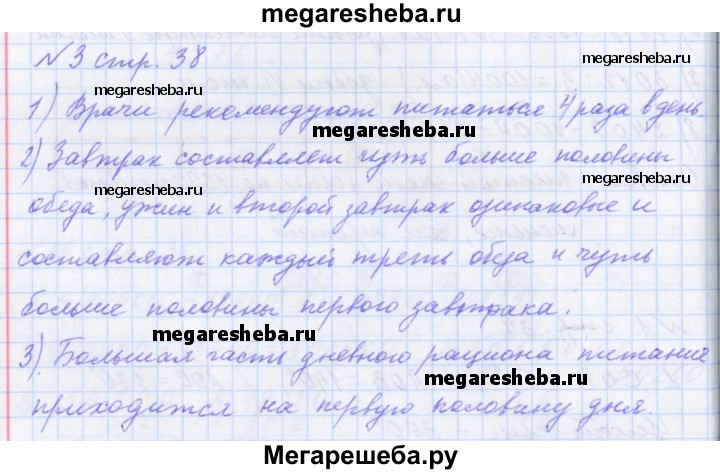 megaresheba.ru
№3 стр. 38
megaresheba.ru
1) Врачи рекомендуют питаться 4 раза в день.
megaresheba.ru
2) Завтрак составляет чуть больше половины
megaresheba.ru
обеда, ужин и второй завтрак одинаковые и
составляют каждый треть обеда и чуть
больше половины первого завтрака.
megaresheba.ru
3). Большая часть дневного рациона питания
megaresheba.ru
приходится на первую половину дня.
Мегарешеба.ру